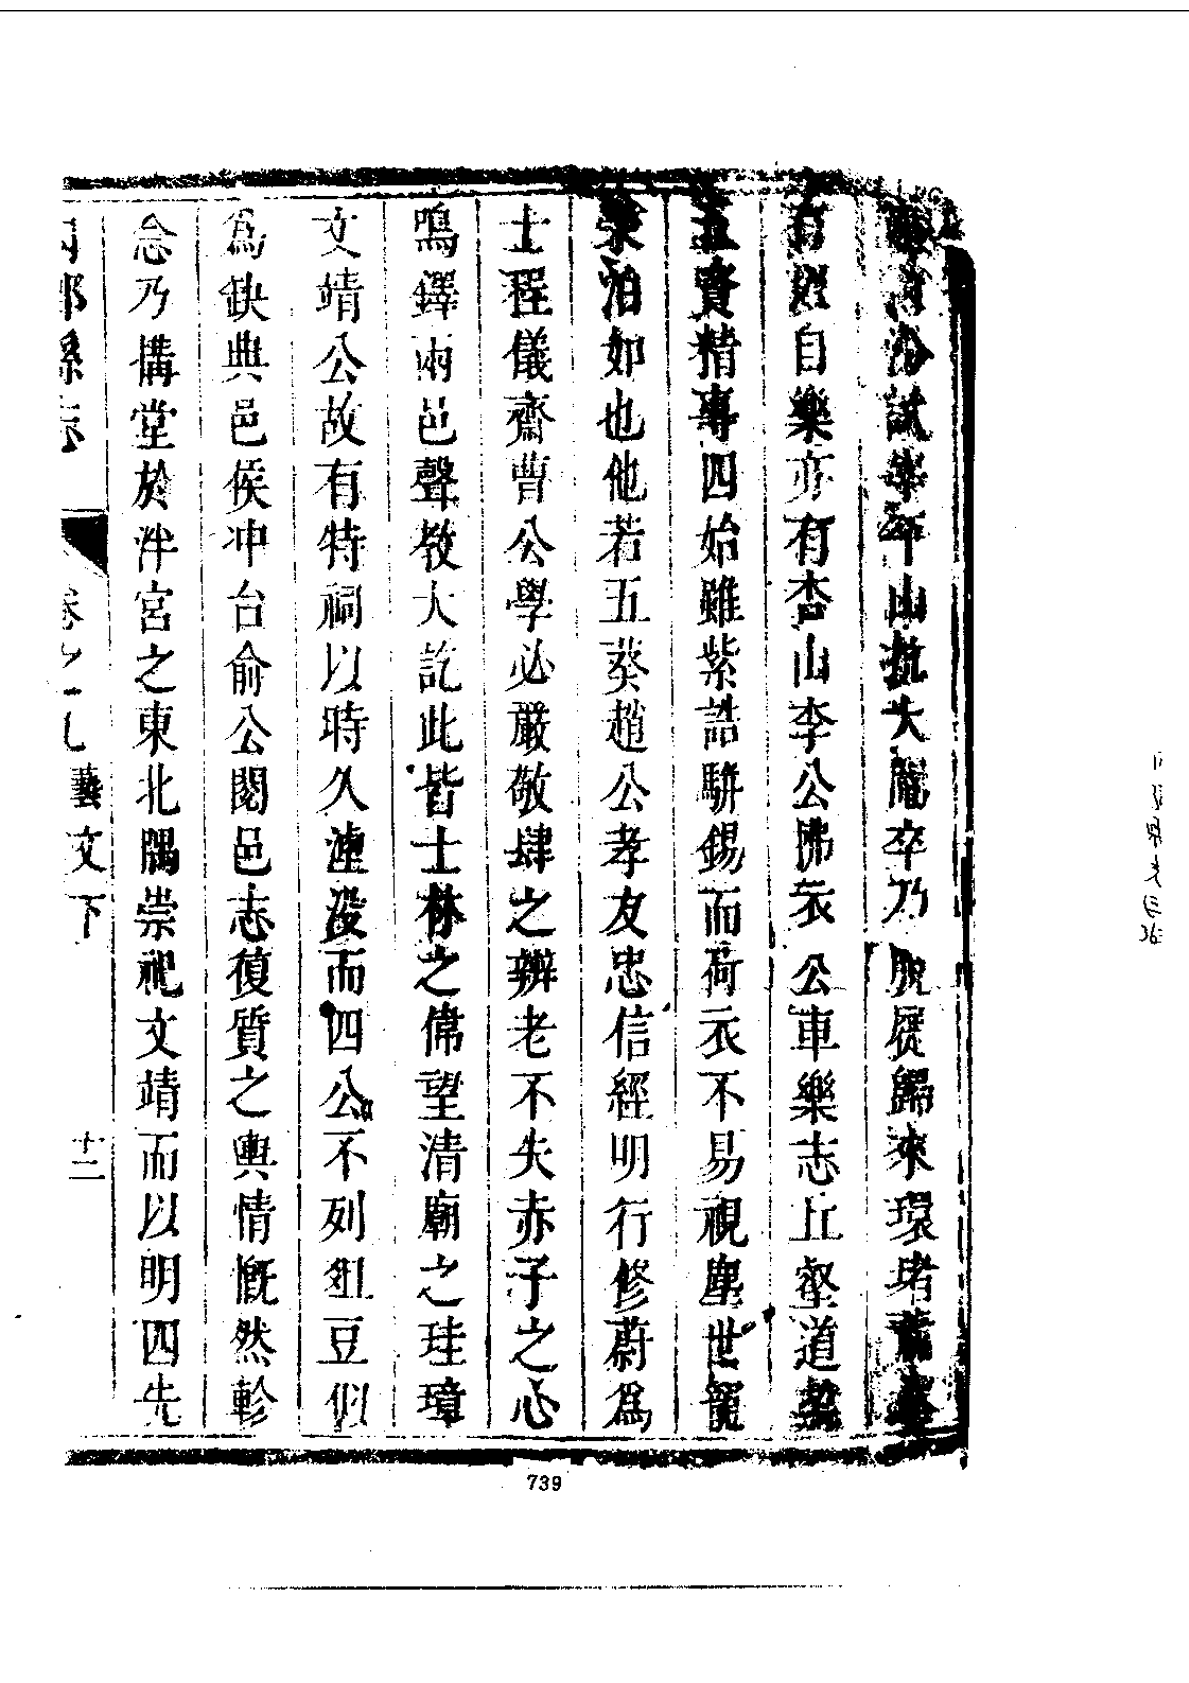 試宰平山抗大閹卒乃脫屣歸來環堵蕭
自娛自樂亦有杏山李公拂衣公車樂志丘壑道
五賓精專四始雖紫誥駢錫而荷衣不易視塵世
泊如也他若五葵趙公孝友忠信經明行修蔚為
士程儀齋曹公學必嚴敬肆之辨老不失赤子之心
鳴鐸兩邑聲教大訖此皆士林之偉望清廟之珪璋
文靖公故有特祠以時久湮沒而四公不列俎豆似
為缺典邑侯冲台俞公閱邑志復質之輿情慨然軫
念乃搆堂於泮宮之東北隅崇祀文靖而以明四先
縣志 卷之九 藝文下 十二
739